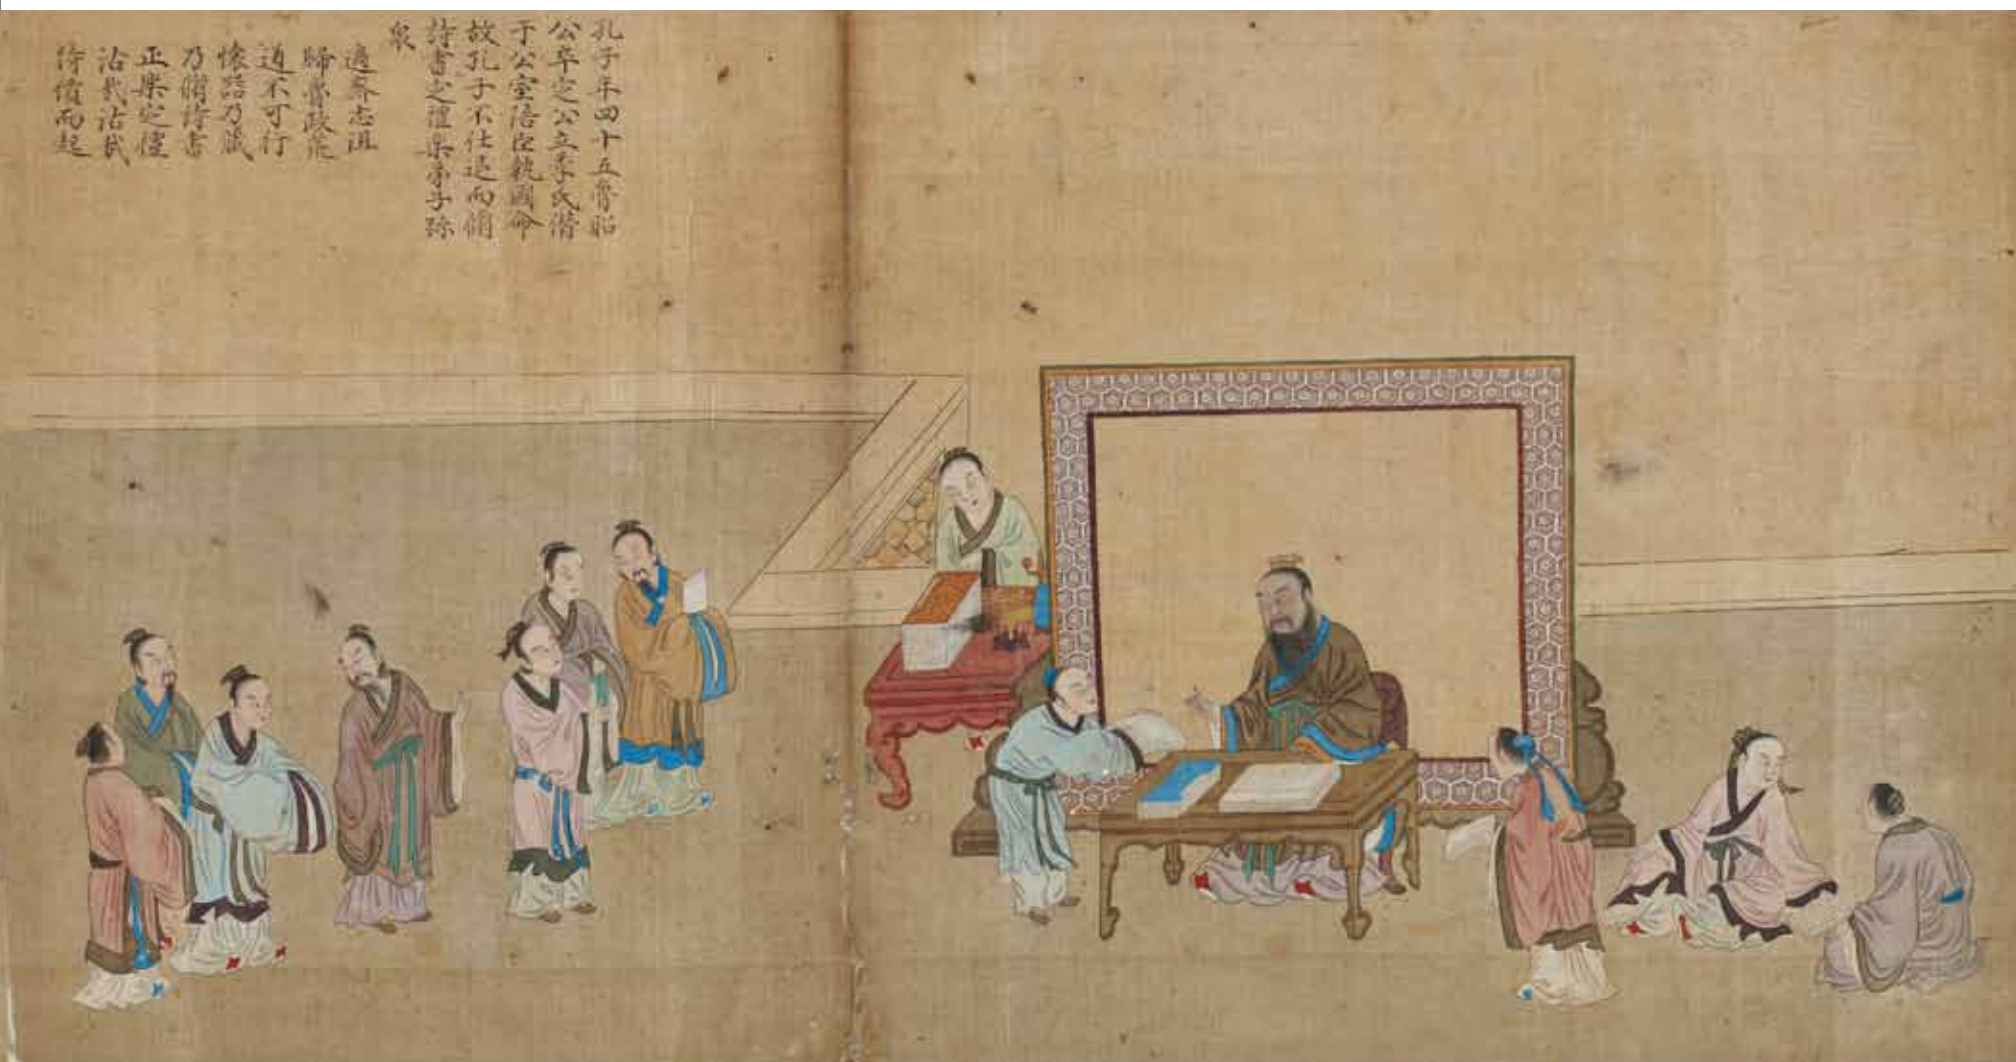 孔子年四十五魯昭
公卒定公立季氏僭
于公室陪臣執國命
故孔子不仕退而脩
詩書定禮樂弟子弥
衆
適齊志沮
歸魯政荒
道不可行
懷乃藏
乃脩詩書
正樂定禮
沽哉沽哉
待價而起